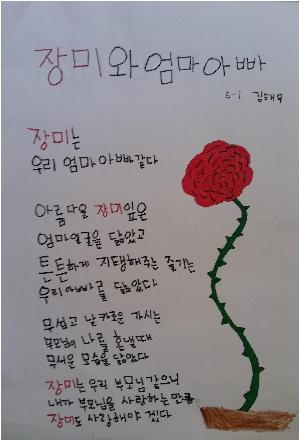 장미와 엄마아빠
5-1 김태우
장미는
우리 엄마아빠같다
아름다운 장미잎은
엄마얼굴을 닮았고
튼튼하게 지탱해주는 줄기는
우리아빠를 닮았다
무섭고 날카로운 가시는
부모님이 나를 혼낼때
무서운 모습을 닮았다
장미는 우리 부모님같으니
내가 부모님을 사랑하는만큼
장미도 사랑해야 겠다